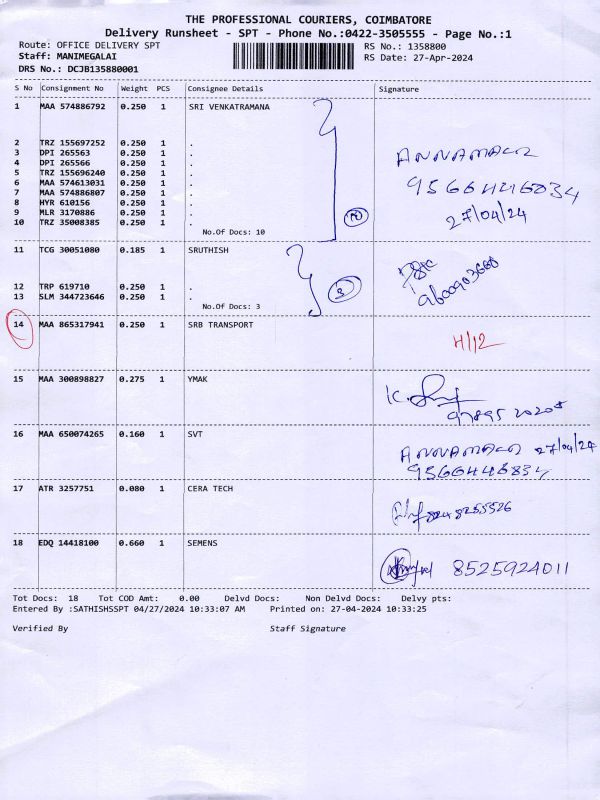 THE PROFESSIONAL COURIERS, COIMBATORE
Delivery Runsheet - SPT - Phone No.:0422-3505555 - Page No.:1
Route: OFFICE DELIVERY SPT RS No.: 1358800
Staff: MANIMEGALAI RS Date: 27-Apr-2024
DRS No.: DCJB135880001
S No Consignment No Weight PCS Consignee Details Signature
1 MAA 574886792 0.250 1 SRI VENKATRAMANA
2 TRZ 155697252 0.250 1 .
3 DPI 265563 0.250 1 .
4 DPI 265566 0.250 1 .
5 TRZ 155696240 0.250 1 .
6 MAA 574613031 0.250 1 .
7 MAA 574886807 0.250 1 .
8 HYR 610156 0.250 1 .
9 MLR 3170886 0.250 1 .
10 TRZ 35008385 0.250 1 .
No.Of Docs: 10
10
27/04/24
11 TCG 30051080 0.185 1 SRUTHISH
12 TRP 619710 0.250 1 .
13 SLM 344723646 0.250 1 .
No.Of Docs: 3
3
14 MAA 865317941 0.250 1 SRB TRANSPORT
15 MAA 300898827 0.275 1 YMAK
16 MAA 650074265 0.160 1 SVT
27/04/24
17 ATR 3257751 0.080 1 CERA TECH
18 EDQ 14418100 0.660 1 SEMENS
8525924011
Tot Docs: 18 Tot COD Amt: 0.00 Delvd Docs: Non Delvd Docs: Delvy pts:
Entered By :SATHISHSSPT 04/27/2024 10:33:07 AM Printed on: 27-04-2024 10:33:25
Verified By Staff Signature